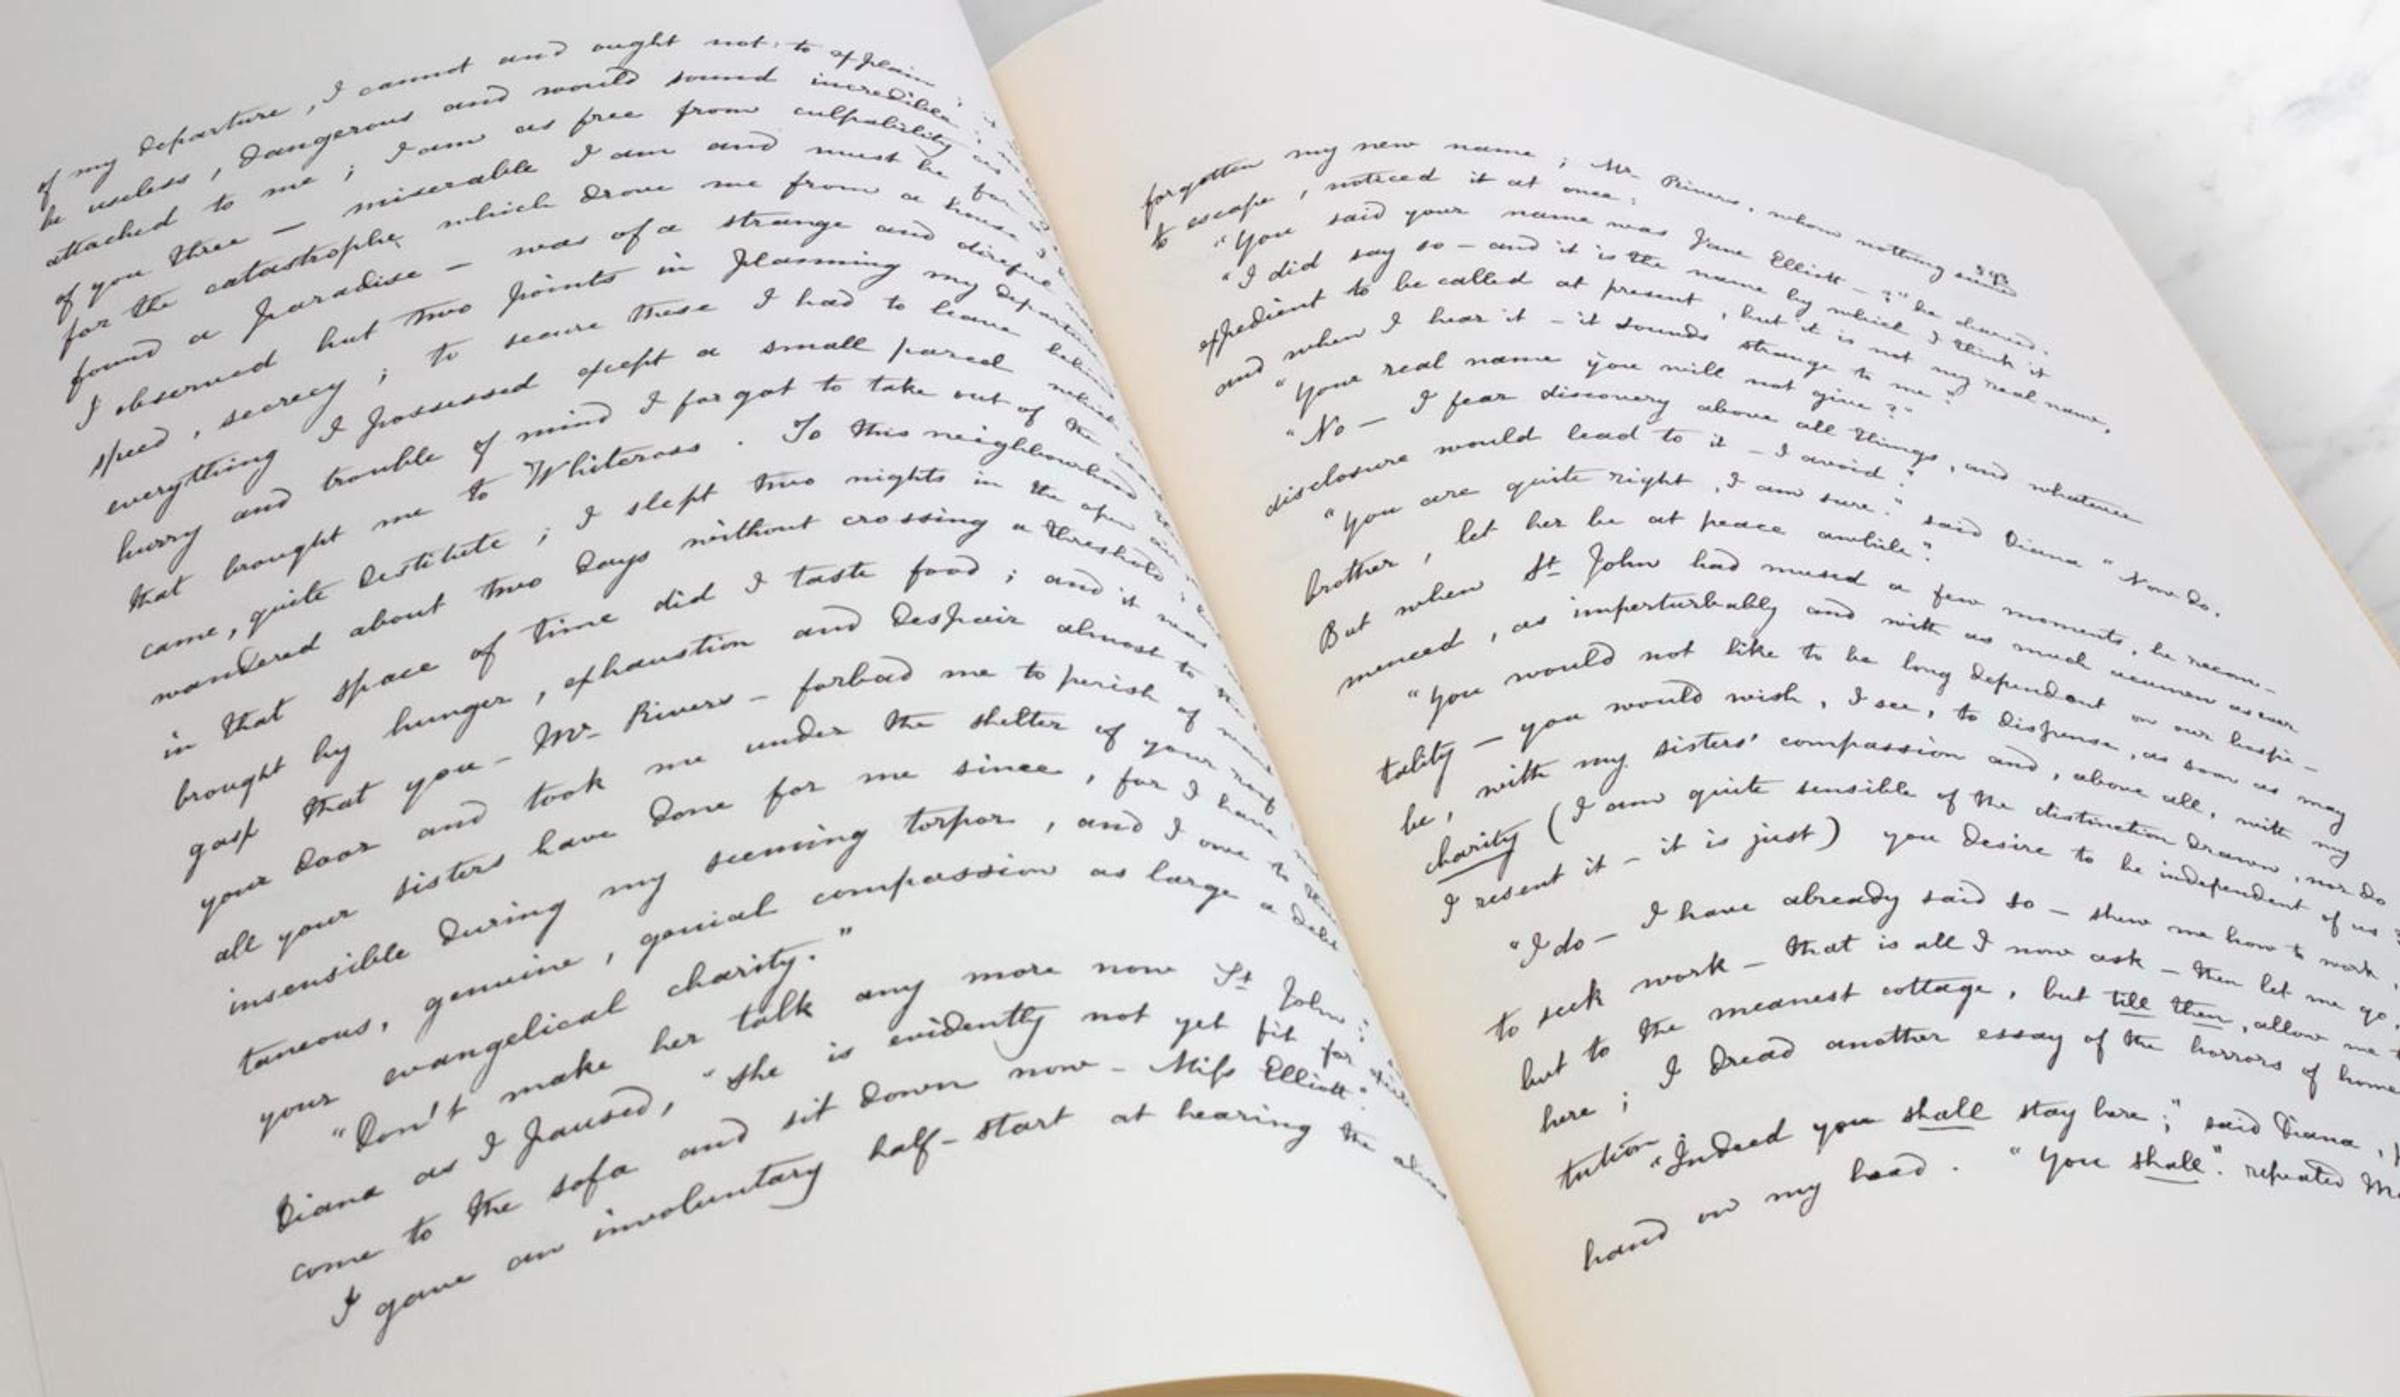 of my departure, I cannot and ought not to explain; it
be useless, dangerous and would sound incredible;
attached to me; I am as free from culpability as
of you three — miserable I am and must be for
for the catastrophe which drove me from a house I
found a paradise — was of a strange and direful
I observed but two points in planning my departure
speed, secrecy; to secure these I had to leave behind
everything I possessed except a small parcel which
hurry and trouble of mind I forgot to take out of the
that brought me to Whitcross. To this neighbourhood
came, quite destitute; I slept two nights in the open air
wandered about two days without crossing a threshold;
in that space of time did I taste food; and it was
brought by hunger, exhaustion and despair almost to
gasp that you - Mr. Rivers - forbad me to perish of
your door and took me under the shelter of your roof.
all your sisters have done for me since, for I have
insensible during my seeming torpor, and I owe to
taneous, genuine, genial compassion as large a debt
your evangelical charity."
"Don't make her talk any more now St. John;"
Diana as I paused, "she is evidently not yet fit for
come to the sofa and sit down now - Miss Elliott."
I gave an involuntary half-start at hearing the alias
forgotten my new name; Mr. Rivers, whom nothing seemed
to escape, noticed it at once.
"You said your name was Jane Elliott -?" he observed.
"I did say so - and it is the name by which I think it
expedient to be called at present, but it is not my real name,
and when I hear it - it sounds strange to me."
"Your real name you will not give?"
"No - I fear discovery above all things, and whatever
disclosure would lead to it - I avoid."
"You are quite right, I am sure." said Diana "Now do,
brother, let her be at peace awhile".
But when St. John had mused a few moments, he recom-
menced, as imperturbably and with as much acumen as ever
"You would not like to be long dependent on our hospi-
tality - you would wish, I see, to dispense, as soon as may
be, with my sisters' compassion and, above all, with my
charity (I am quite sensible of the distinction drawn, nor do
I resent it - it is just) you desire to be independent of us?
"I do - I have already said so - shew me how to work,
to seek work - that is all I now ask - then let me go,
but to the meanest cottage, but till then, allow me
here; I dread another essay of the horrors of home
"Indeed you shall stay here;" said Diana,
tution."
hand on my head. "You shall". repeated